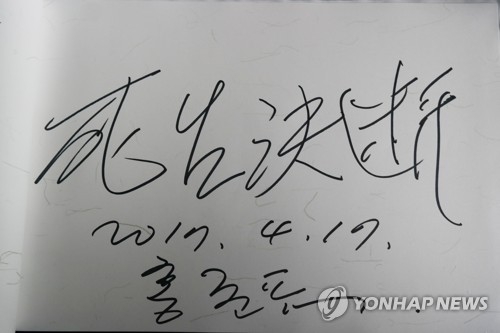 死生決断
2017. 4. 17.
홍준표
YONHAP NEWS